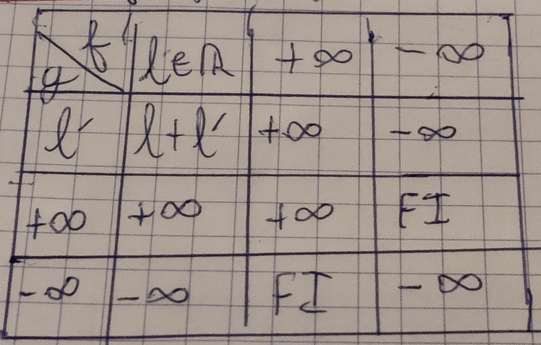 f l∈ℝ +∞ -∞
g
l' l+l' +∞ -∞
+∞ +∞ +∞ FI
-∞ -∞ FI -∞